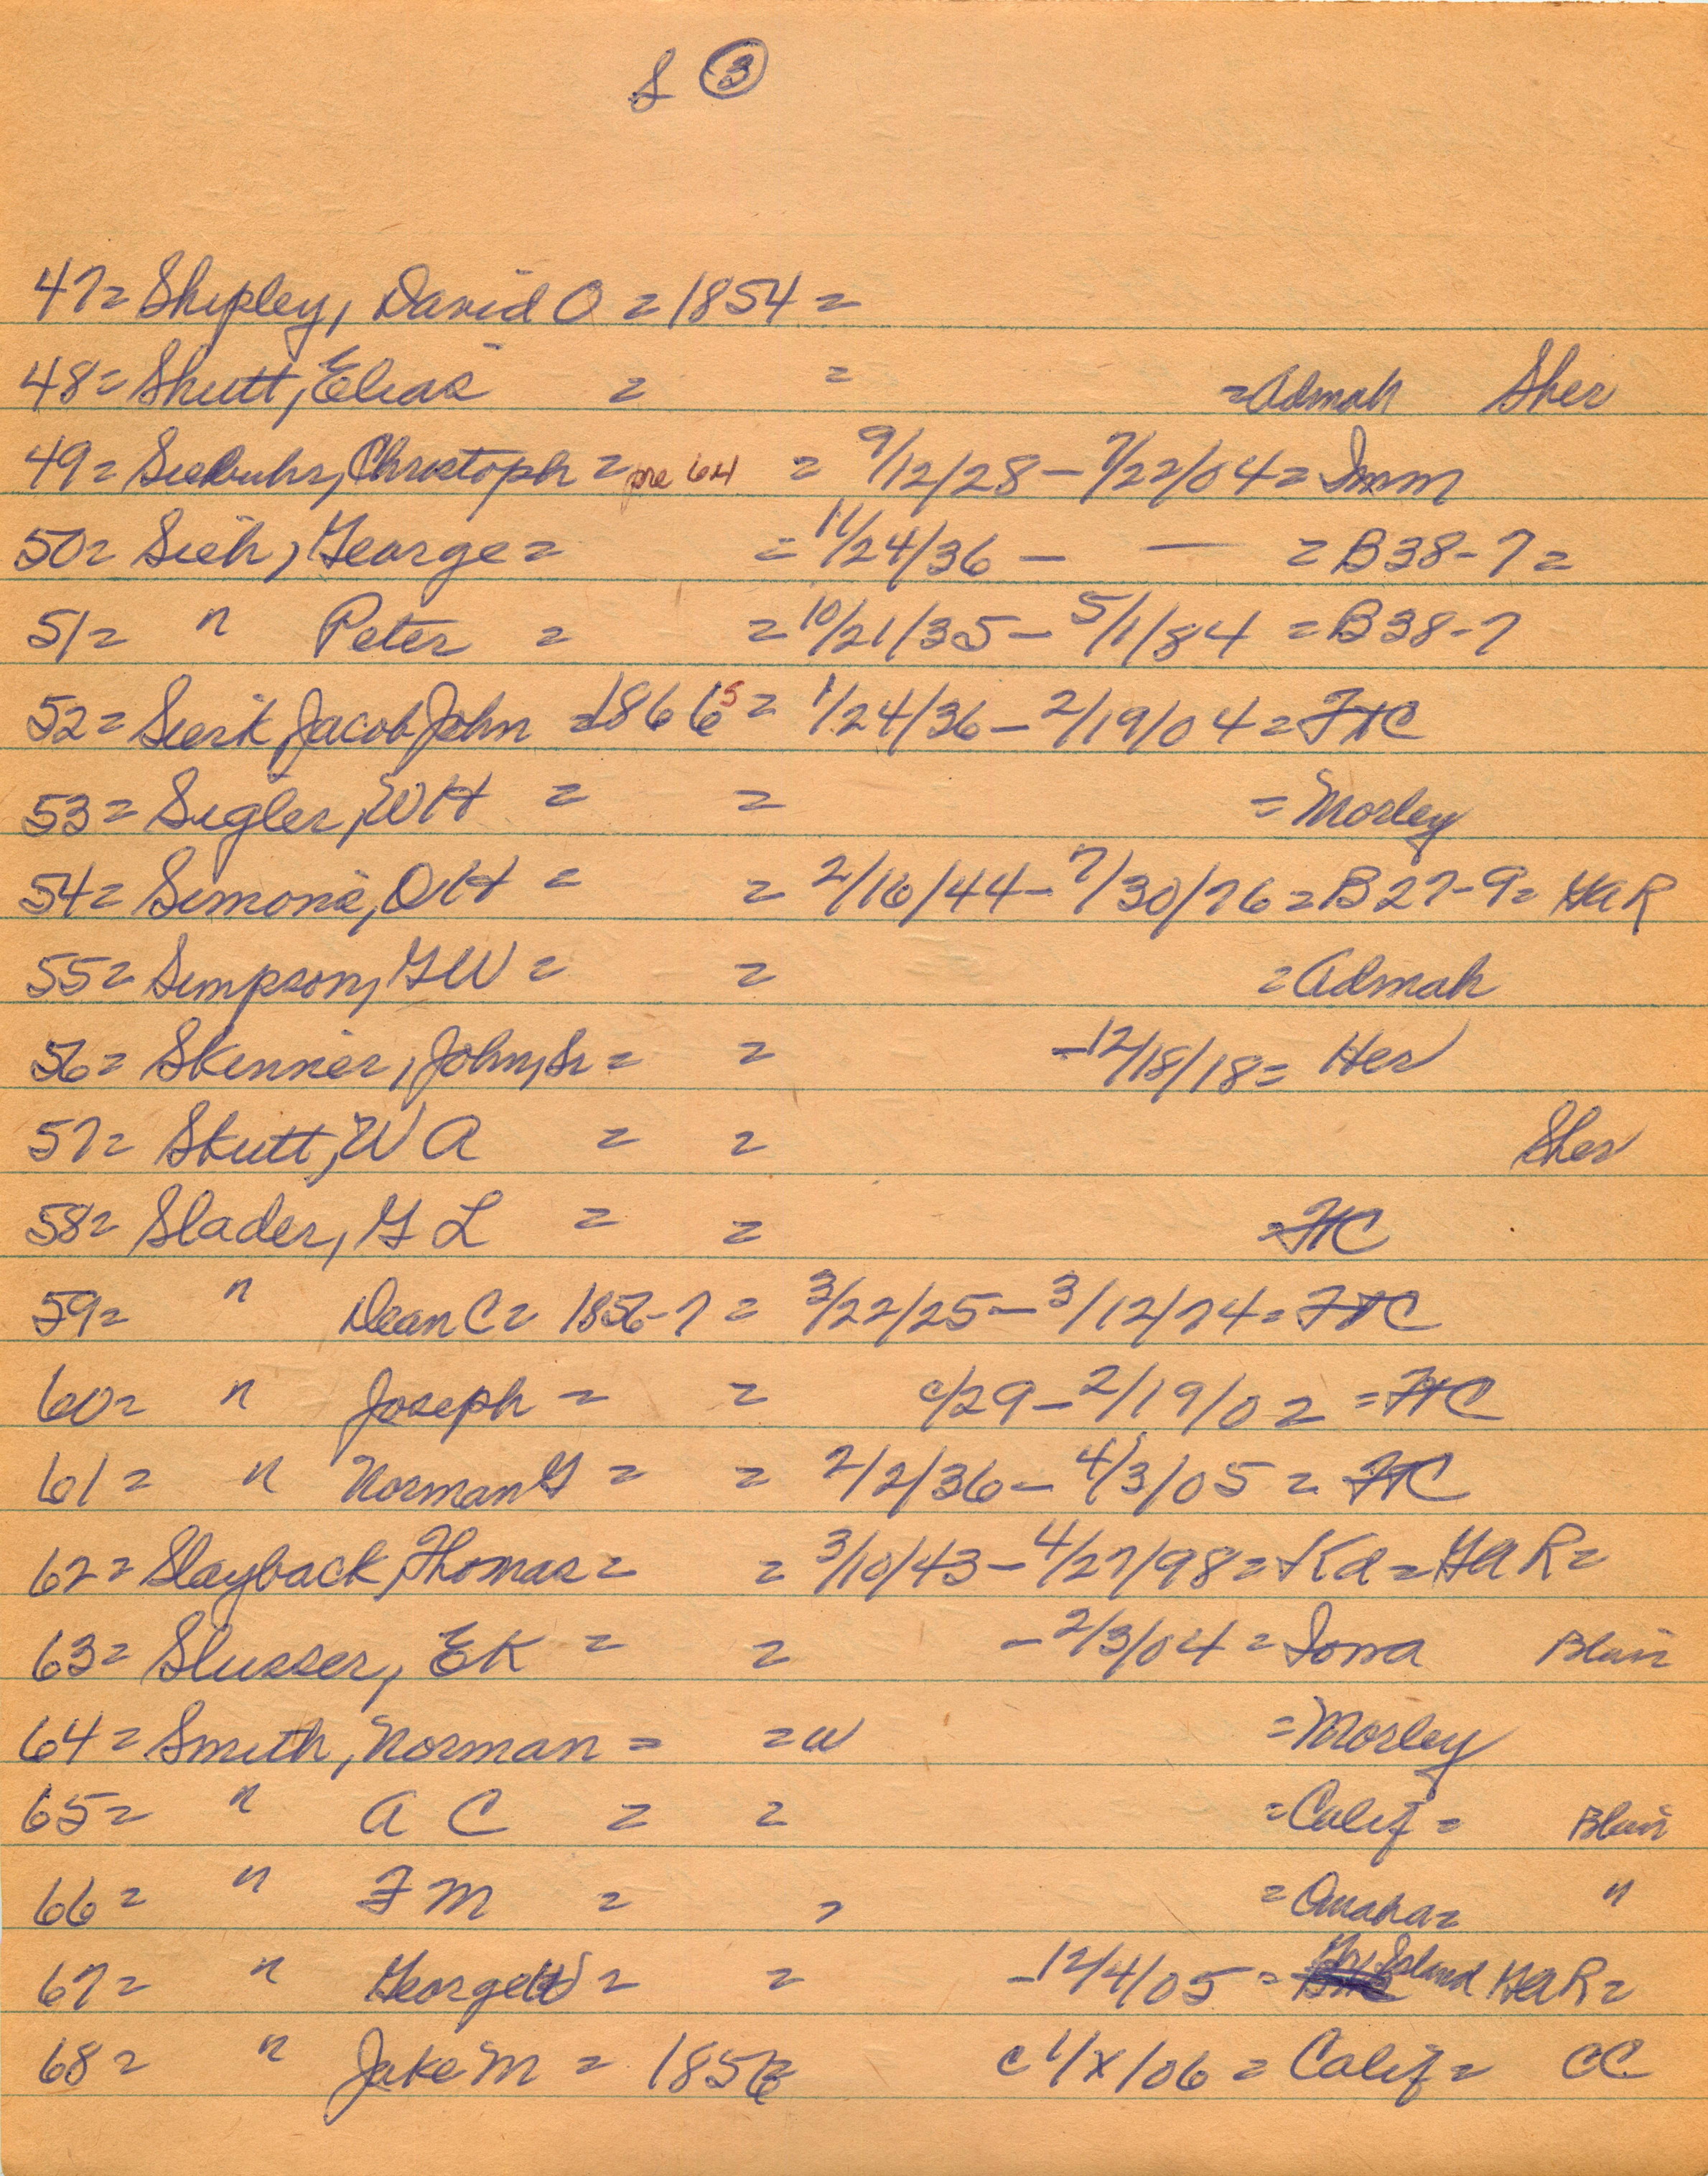 S ③
47= Shipley, David O = 1854 =
48= Shutt, Elias = = =Admah Sher
49= Siebuhr, Christoph = pre 64 = 9/12/28 - 7/22/04 = Imm
50= Sieh, George = = 11/24/36 - — = B38-7 =
51= " Peter = = 10/21/35 - 5/1/84 = B38-7
52= Sierk, Jacob John = 1866 5 = 1/24/36 - 2/19/04 = FtC
53= Sigler, WH = = = Morley
54= Simons, OH = = 2/16/44 - 7/30/76 = B27-9 = GAR
55= Simpson, GW = = = Admah
56= Skinner, John, Sr = = -12/18/18 = Her
57= Skutt, W A = = Sher
58= Slader, G L = = = FtC
59= " Dean C = 1856-7 = 3/22/25 - 3/12/74 = FtC
60= " Joseph = = c/29 - 2/19/02 = FtC
61= " Norman G = = 2/2/36 - 4/3/05 = FtC
62= Slayback, Thomas = = 3/10/43 - 4/27/98 = Ka = GAR =
63= Slusser, EK = = - 2/3/04 = Iowa Blair
64= Smith, Norman = = w = Morley
65= " A C = = = Calif = Blair
66= " F M = = = Omaha = "
67= " George = = -12/4/05 = Island GAR =
68= " Jake M = 1856 c 1/x/06 = Calif = CC